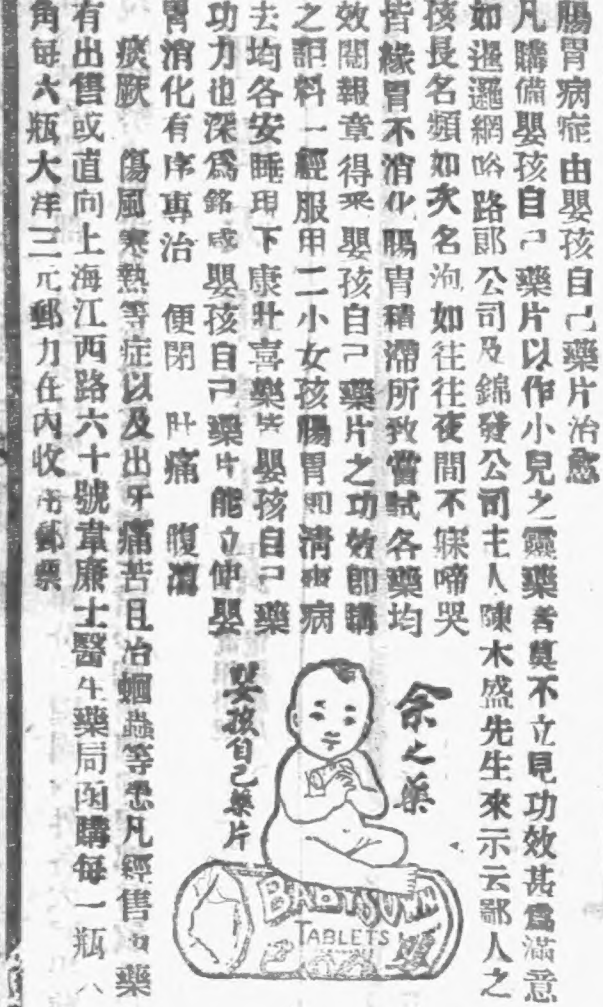 腸胃病症由嬰孩自己藥片治愈
凡購備嬰孩自己藥片以作小兒之靈藥者莫不立見功效甚爲滿意
如暹邏網峪路郎公司及錦發公司主人陳木盛先生來示云鄙人之
孩長名類如次名洵如往往夜間不寐啼哭
皆緣胃不消化腸胃積滯所致嘗試各藥均
效閱報章得釆嬰孩自己藥片之功效卽購
之詎料一經服用二小女孩腸胃卽清爽病
去均各安睡現下康壯喜樂皆嬰孩自己藥
功力也深爲銘感嬰孩自己藥片能立使嬰
胃消化有序專治 便閉 肚痛 腹瀉
痰厥 傷風寒熱等症以及出牙痛苦且治蛔蟲等患凡經售西藥
有出售或直向上海江西路六十號韋廉士醫生藥局函購每一瓶八
角每六瓶大洋三元郵力在內收用郵票
余之藥
嬰孩自己藥片
BABY'S OWN
TABLETS